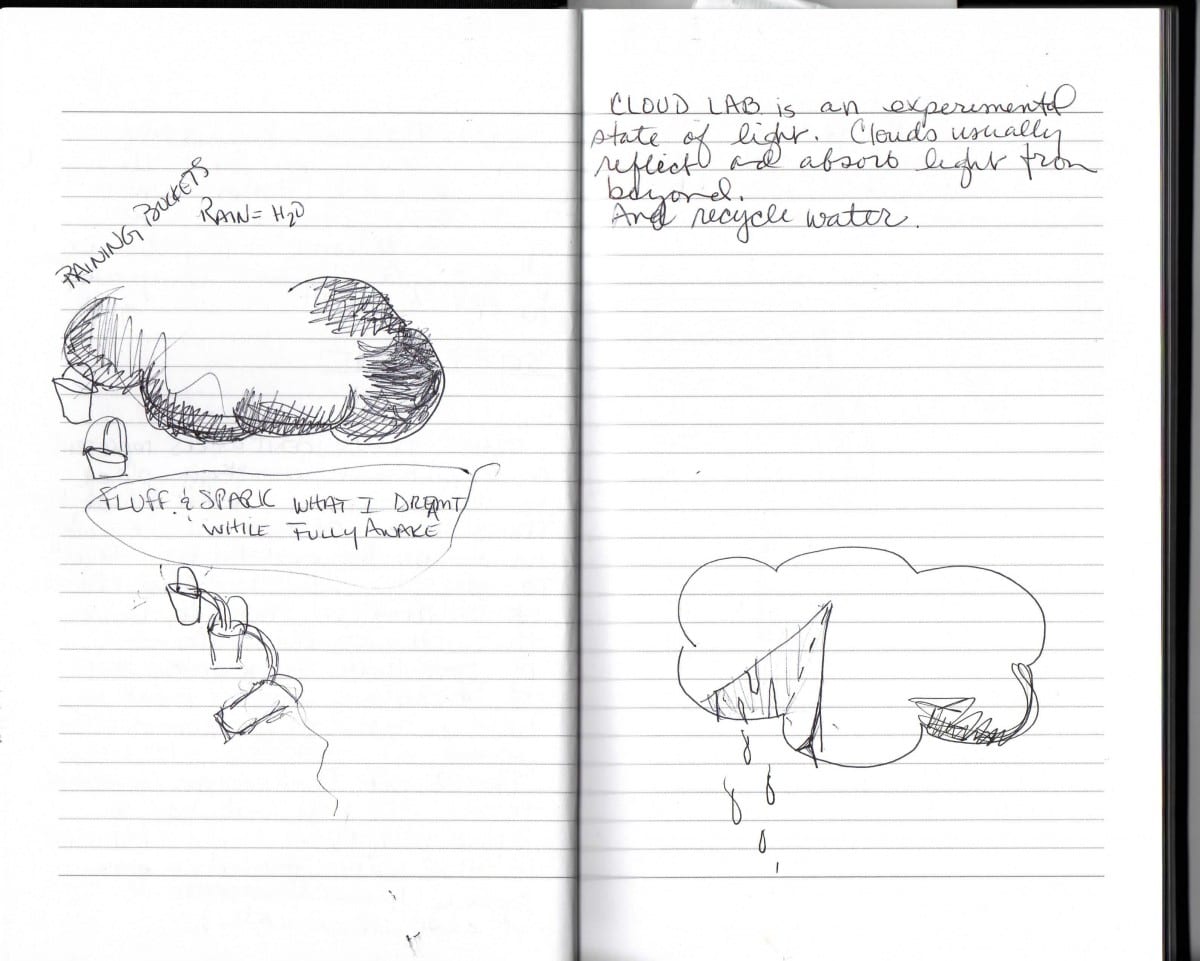 RAINING BUCKETS
RAIN = H2O
FLUFF & SPARK WHAT I DREAMT
WHILE FULLY AWAKE
CLOUD LAB is an experimental
state of light. Clouds usually
reflect and absorb light from
beyond.
And recycle water.